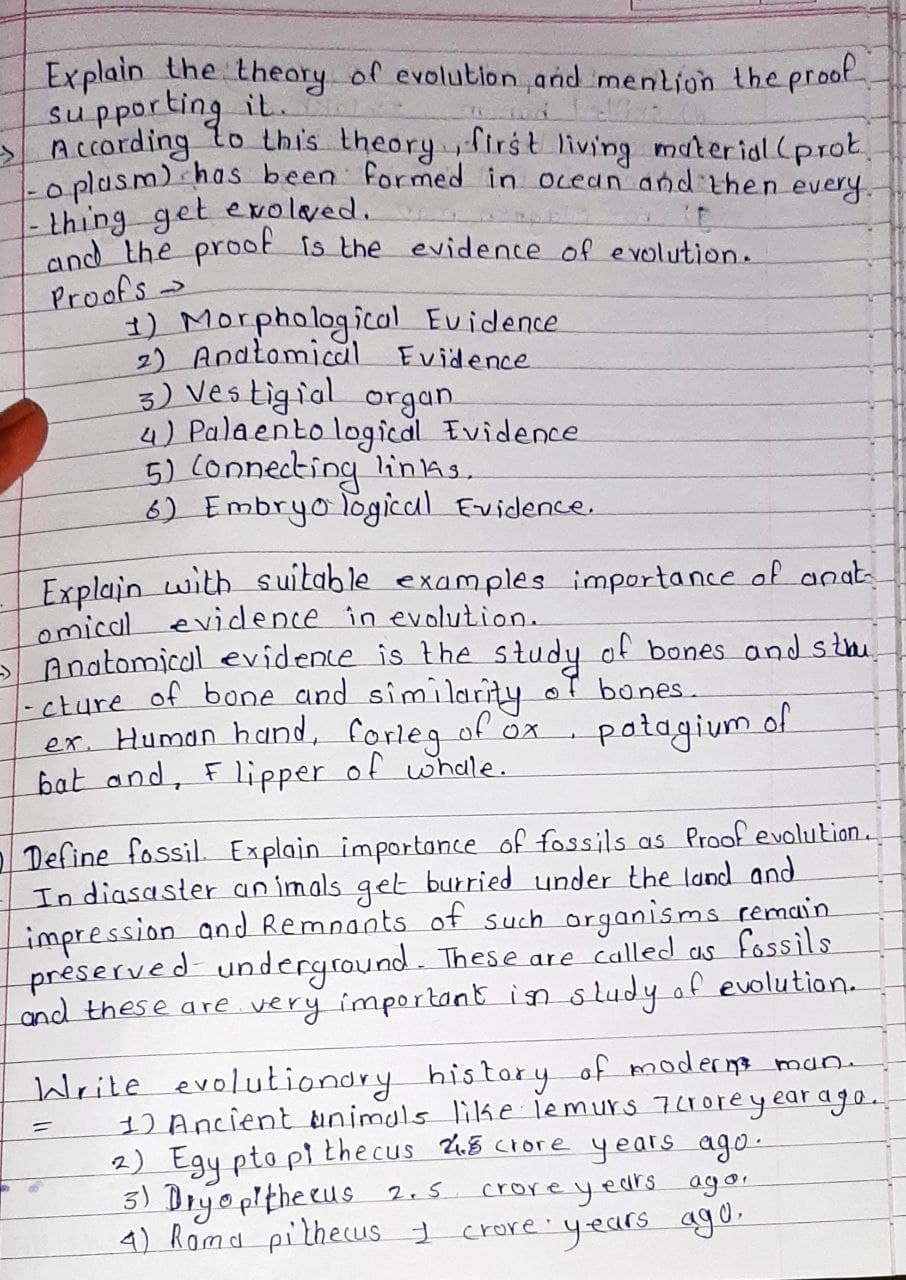 Explain the theory of evolution and mention the proof
supporting it.
According to this theory, first living material (prot
-oplasm) has been formed in ocean and then every
-thing get evolved.
and the proof is the evidence of evolution.
Proofs →
1) Morphological Evidence
2) Anatomical Evidence
3) Vestigial organ
4) Palaentological Evidence
5) Connecting links.
6) Embryological Evidence.
Explain with suitable examples importance of anat-
omical evidence in evolution.
Anatomical evidence is the study of bones and stru
-cture of bone and similarity of bones.
ex. Human hand, forleg of ox, patagium of
bat and, Flipper of whale.
Define fossil. Explain importance of fossils as Proof evolution.
In diasaster animals get burried under the land and
impression and Remnants of such organisms remain
preserved underground. These are called as fossils
and these are very important in study of evolution.
Write evolutionary history of modern man.
= 1) Ancient animals like lemurs 7 crore year ago.
2) Egyptopithecus crore years ago.
3) Dryopithecus 2.5 crore years ago.
4) Rama pithecus 1 crore years ago.